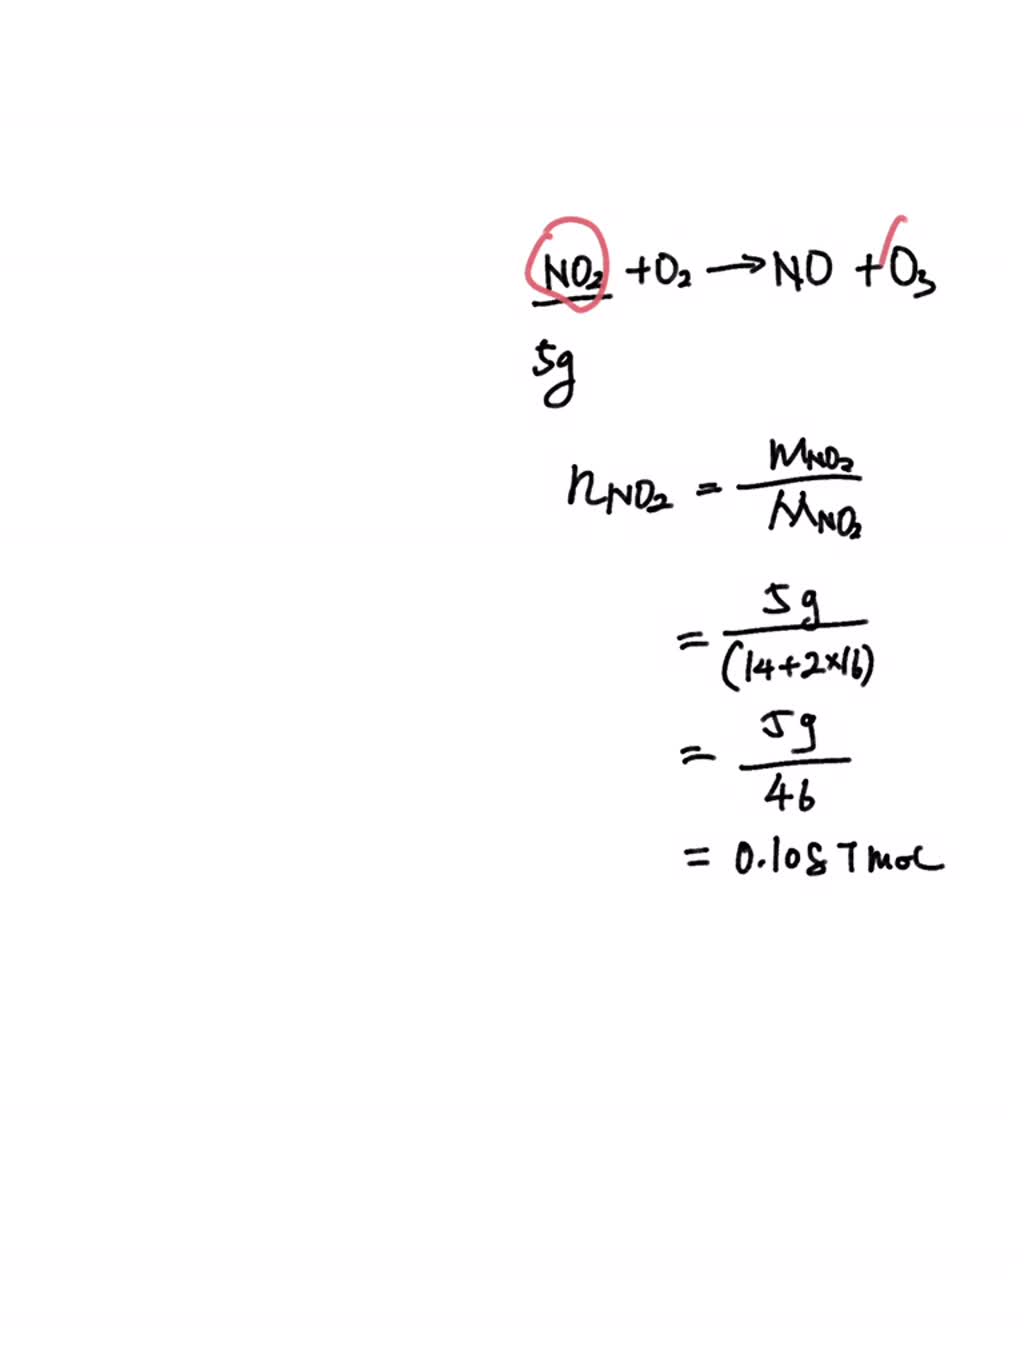 NO₂ + O₂ → NO + O₃
5g
n_NO₂ = m_NO₂ / M_NO₂
= 5g / (14+2×16)
= 5g / 46
= 0.1087 mol